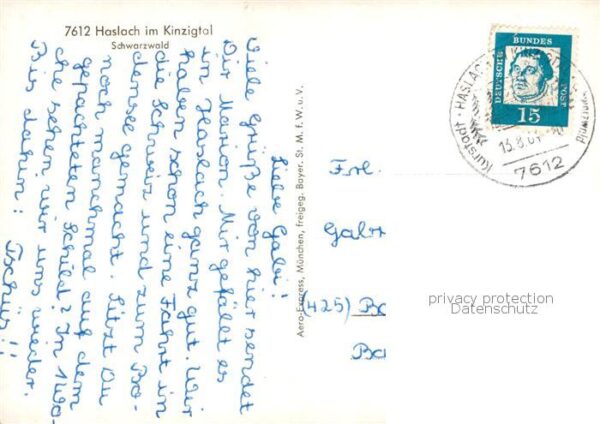 7612 Haslach im Kinzigtal
Schwarzwald
Liebe Gabi!
Viele Grüße von hier sendet
Dir Marion. Mir gefällt es
in Haslach ganz gut. Wir
haben schon eine Fahrt in
die Schweiz und zum Bo-
densee gemacht. Sitzt Du
noch manchmal auf dem
gepachteten Schild? In 1 Wo-
che sehen wir uns wieder.
Bis dahin: Tschüs!!
Aero-Express, München, freigeg. Bayer. St. M. f. W. u. V.
DEUTSCHE
BUNDES
POST
15
Kurstadt · HASLACH
13.8.64
7612
Frl.
Gabi
(425) Bo
privacy protection
Datenschutz